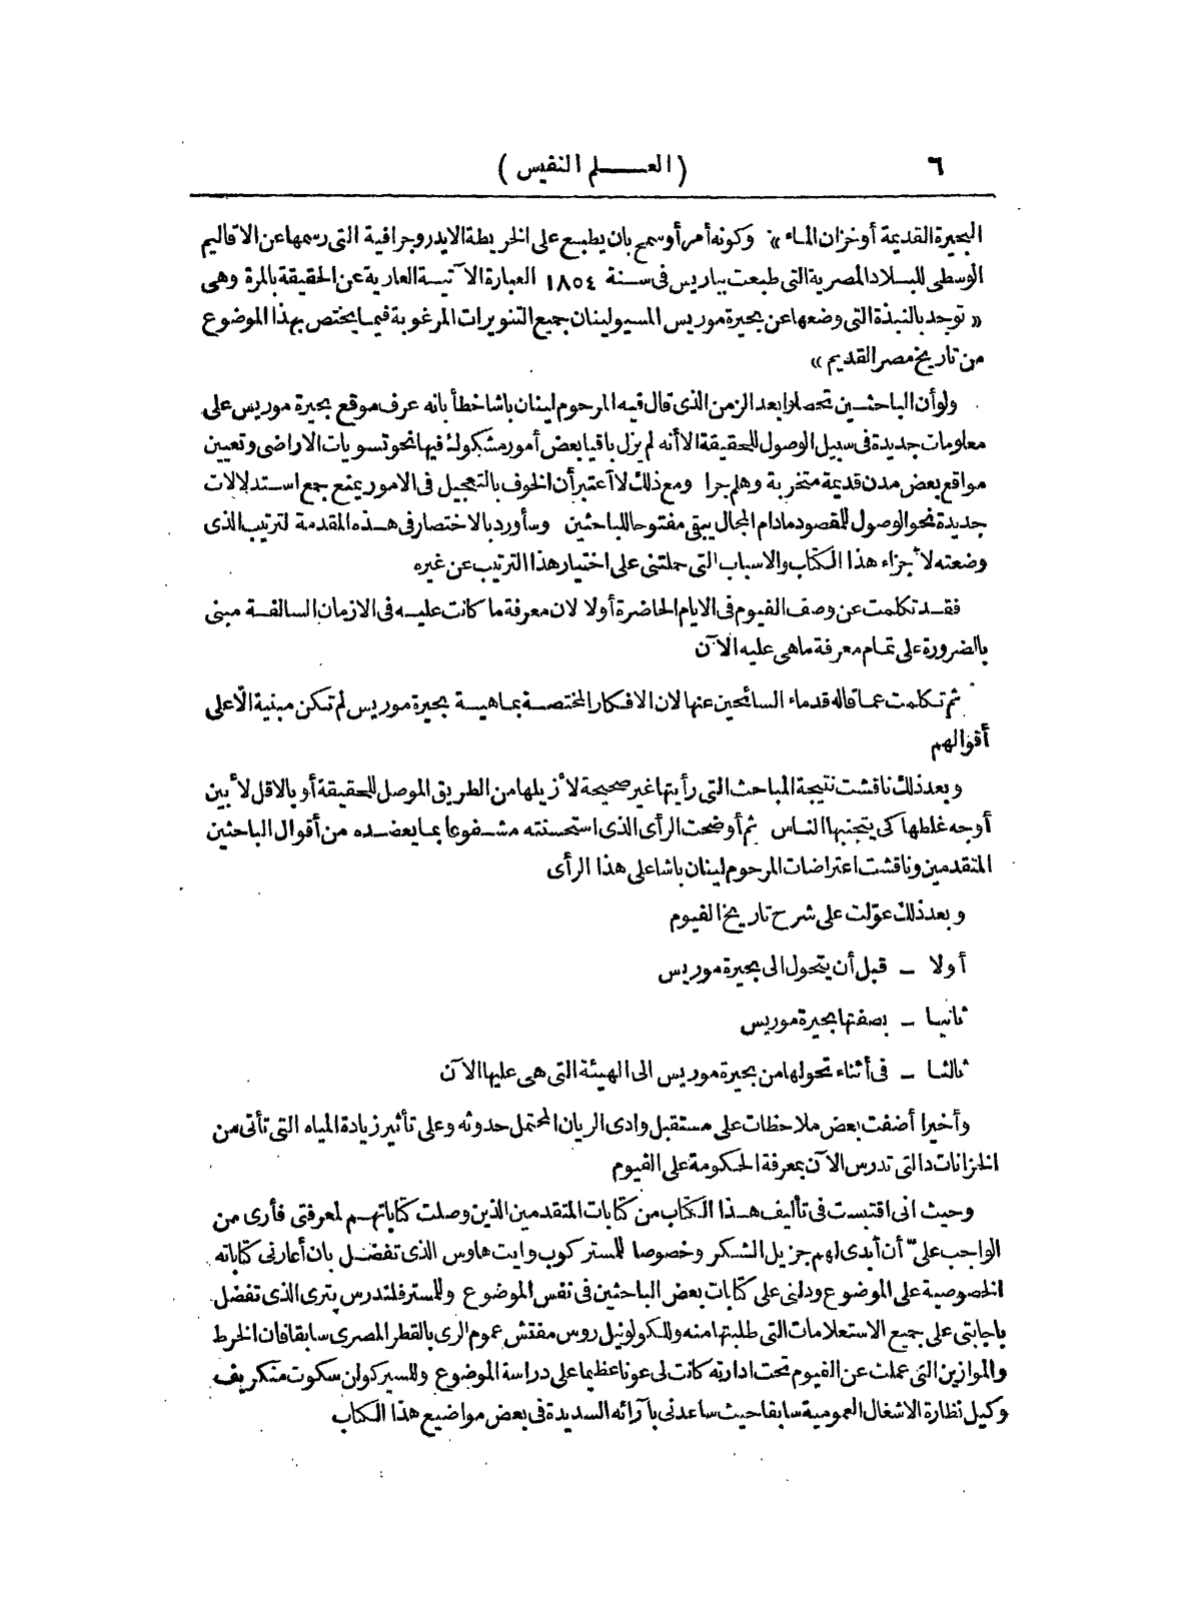 ٦
(العلم النفيس)
البحيرة القديمة أو خزان الماء» وكونه أمر أو سمح بان يطبع على الخريطة الايدروجرافية التى رسمها عن الاقاليم
الوسطى للبلاد المصرية التى طبعت بباريس فى سنة ١٨٥٤ العبارة الآتية العارية عن الحقيقة بالمرة وهى
«توجد بالنبذة التى وضعها عن بحيرة موريس المسيو لينان جميع التنويرات المرغوبة فيما يختص بهذا الموضوع
من تاريخ مصر القديم»
ولو أن الباحثين تحصلوا بعد الزمن الذى قال فيه المرحوم لينان باشا خطأ بانه عرف موقع بحيرة موريس على
معلومات جديدة فى سبيل الوصول للحقيقة الا أنه لم يزل باقيا بعض أمور مشكوك فيها نحو تسويات الاراضى وتعيين
مواقع بعض مدن قديمة متخربة وهلم جرا ومع ذلك لا أعتبر أن الخوف بالتعجيل فى الامور يمنع جمع استدلالات
جديدة نحو الوصول للمقصود مادام المجال يبقى مفتوحا للباحثين وسأورد بالاختصار فى هذه المقدمة لترتيب الذى
وضعته لأجزاء هذا الكتاب والاسباب التى حملتنى على اختيار هذا الترتيب عن غيره
فقد تكلمت عن وصف الفيوم فى الايام الحاضرة أولا لان معرفة ما كانت عليه فى الازمان السالفة مبنى
بالضرورة على تمام معرفة ماهى عليه الآن
ثم تكلمت عما قاله قدماء السائحين عنها لان الافكار المختصة بماهية بحيرة موريس لم تكن مبنية الّا على
أقوالهم
وبعد ذلك ناقشت نتيجة المباحث التى رأيتها غير صحيحة لأزيلها من الطريق الموصل للحقيقة أو بالاقل لأبين
أوجه غلطها كى يتجنبها الناس ثم أوضحت الرأى الذى استحسنته مشفوعا بما يعضده من أقوال الباحثين
المتقدمين وناقشت اعتراضات المرحوم لينان باشا على هذا الرأى
وبعد ذلك عوّلت على شرح تاريخ الفيوم
أولا ـ قبل أن يتحول الى بحيرة موريس
ثانيا ـ بصفتها بحيرة موريس
ثالثا ـ فى أثناء تحولها من بحيرة موريس الى الهيئة التى هى عليها الآن
وأخيرا أضفت بعض ملاحظات على مستقبل وادى الريان المحتمل حدوثه وعلى تأثير زيادة المياه التى تأتى من
الخزانات التى تدرس الآن بمعرفة الحكومة على الفيوم
وحيث انى اقتبست فى تأليف هذا الكتاب من كتابات المتقدمين الذين وصلت كتاباتهم لمعرفتى فأرى من
الواجب علىّ أن أبدى لهم جزيل الشكر وخصوصا للمستر كوب وايت هاوس الذى تفضل بان أعارنى كتاباته
الخصوصية على الموضوع ودلنى على كتابات بعض الباحثين فى نفس الموضوع وللمستر فلندرس پترى الذى تفضل
باجابتى على جميع الاستعلامات التى طلبتها منه وللكولونيل روس مفتش عموم الرى بالقطر المصرى سابقا فان الخرط
والموازين التى عملت عن الفيوم تحت ادارته كانت لى عونا عظيما على دراسة الموضوع وللسير كولن سكوت منكريف
وكيل نظارة الاشغال العمومية سابقا حيث ساعدنى بآرائه السديدة فى بعض مواضيع هذا الكتاب